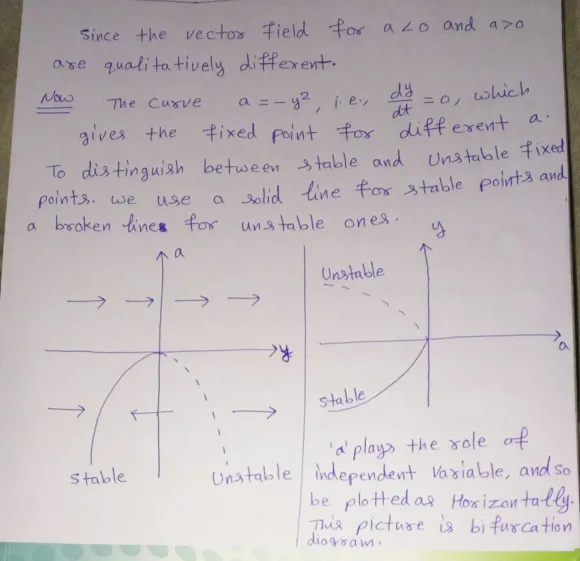 Since the vector field for a < 0 and a > 0
are qualitatively different.
Now The curve a = -y², i.e., dy/dt = 0, which
gives the fixed point for different a.
To distinguish between stable and Unstable fixed
points. we use a solid line for stable points and
a broken lines for unstable ones.
a
y
Stable
Unstable
y
Unstable
a
Stable
'a' plays the role of
independent Variable, and so
be plotted as Horizontally.
This picture is bifurcation
diagram.